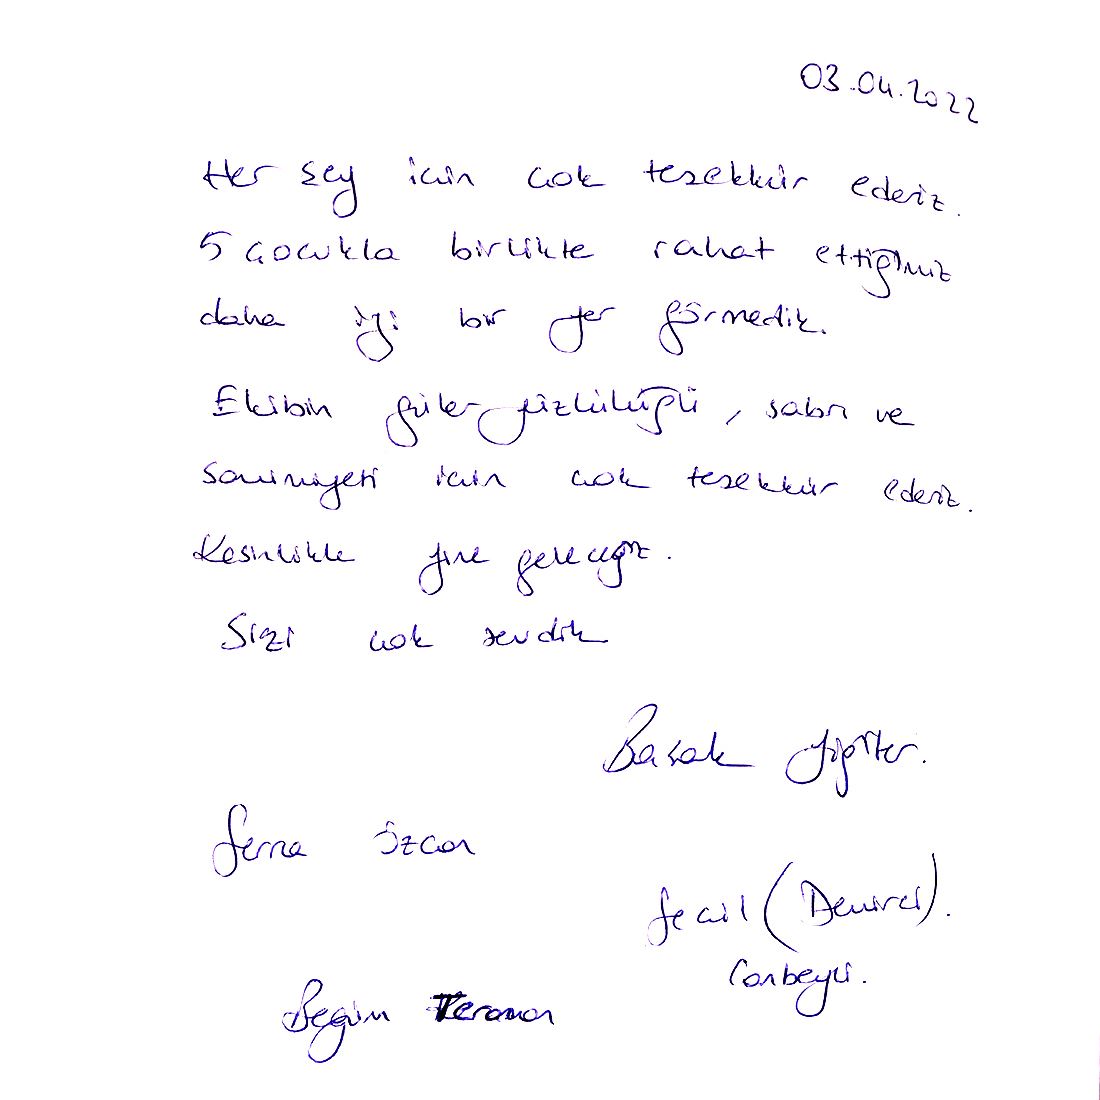 03.04.2022
Her şey için çok teşekkür ederiz.
5 çocukla birlikte rahat ettiğimiz
daha iyi bir yer görmedik.
Ekibin güler yüzlülüğü, sabrı ve
samimiyeti için çok teşekkür ederiz.
Kesinlikle yine geleceğiz.
Sizi çok sevdik
Başak Yiğiter.
Sema Özcan
Seçil (Demirci).
Canbeyli.
Begüm